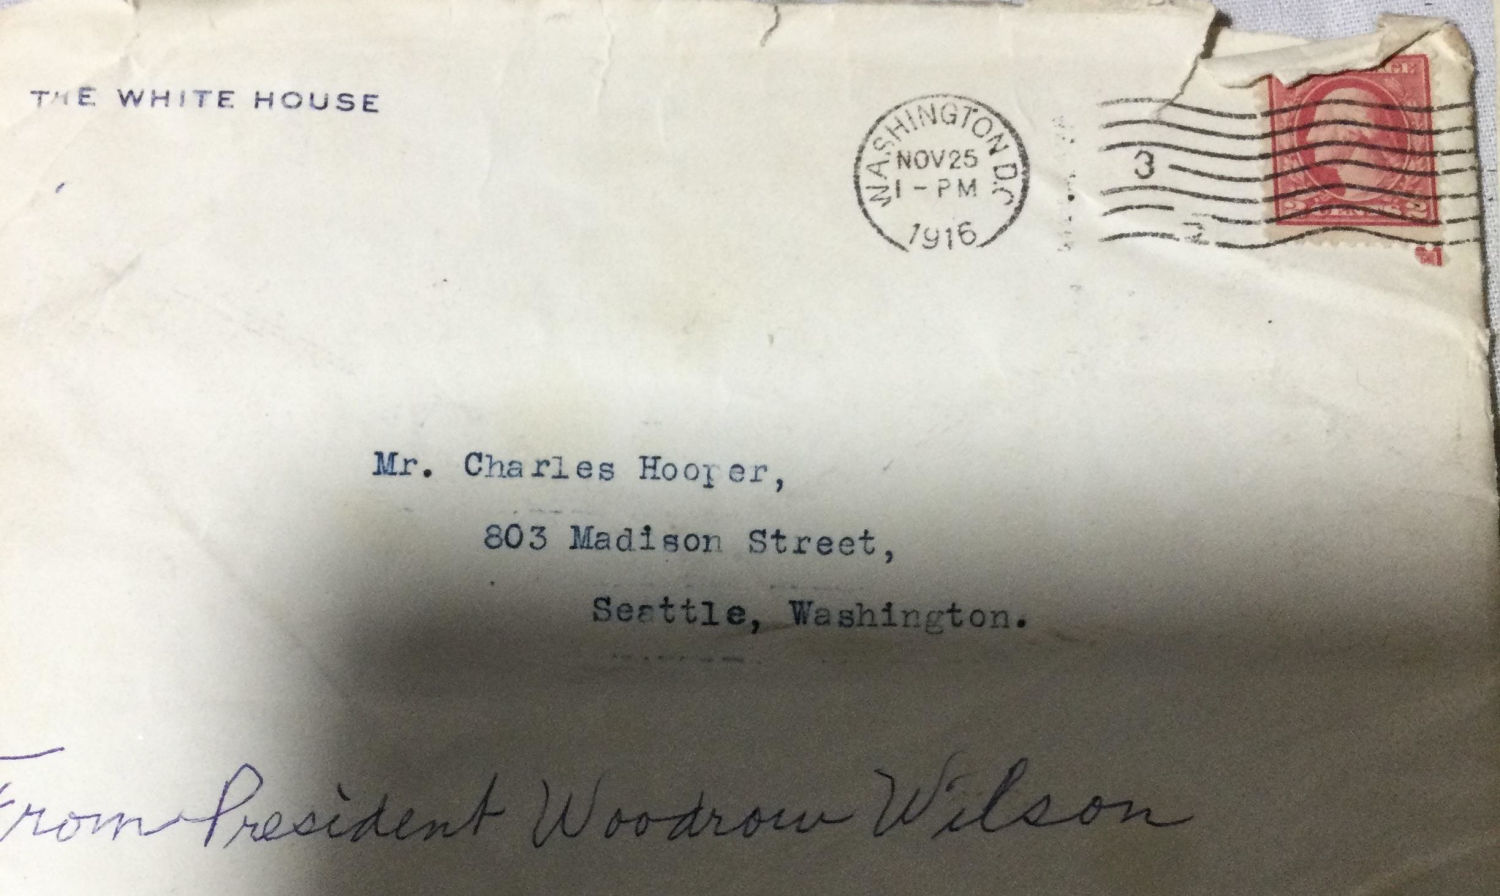 THE WHITE HOUSE
WASHINGTON D.C.
NOV 25
1 - PM
1916
3
2 CENTS 2
Mr. Charles Hooper,
803 Madison Street,
Seattle, Washington.
From President Woodrow Wilson